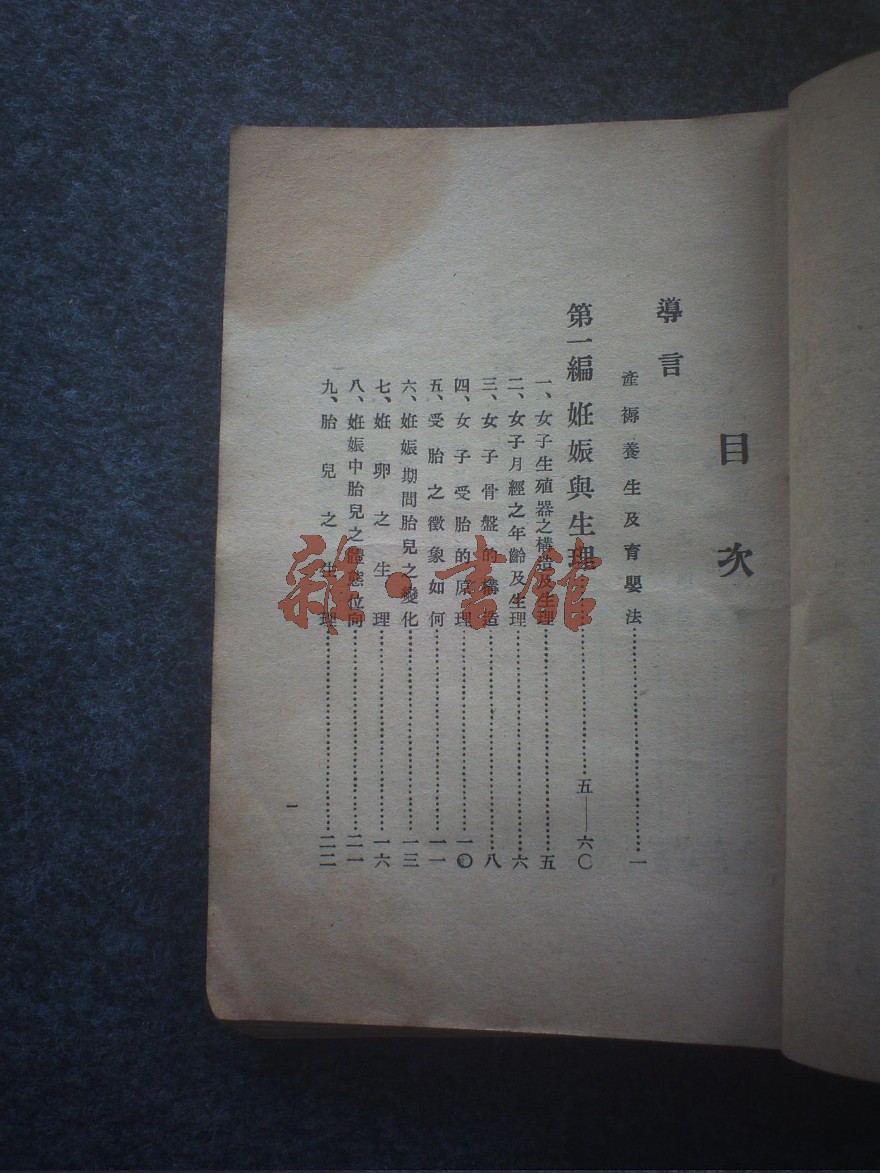 目次
導言
產褥養生及育嬰法……一
第一編 姙娠與生理……五——六〇
一、女子生殖器之構造及生理……五
二、女子月經之年齡及生理……六
三、女子骨盤的構造……八
四、女子受胎的原理……一〇
五、受胎之徵象如何……一一
六、姙娠期間胎兒之變化……一三
七、姙卵之生理……一六
八、姙娠中胎兒之體態位向……二一
九、胎兒之生理……二二
一
雜·書館